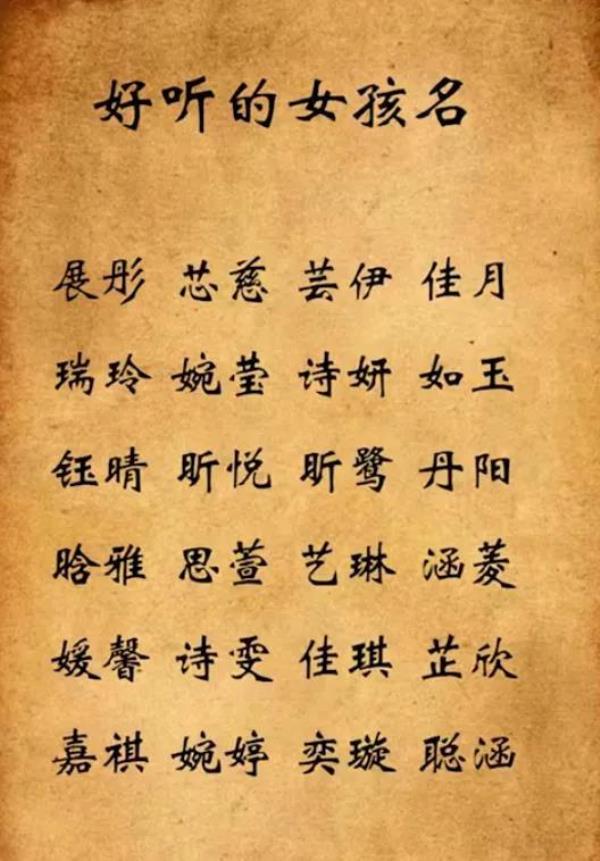 好听的女孩名
展彤 芯慈 芸伊 佳月
瑞玲 婉莹 诗妍 如玉
钰晴 昕悦 昕鹭 丹阳
晗雅 思萱 艺琳 涵菱
媛馨 诗雯 佳琪 芷欣
嘉祺 婉婷 奕璇 聪涵